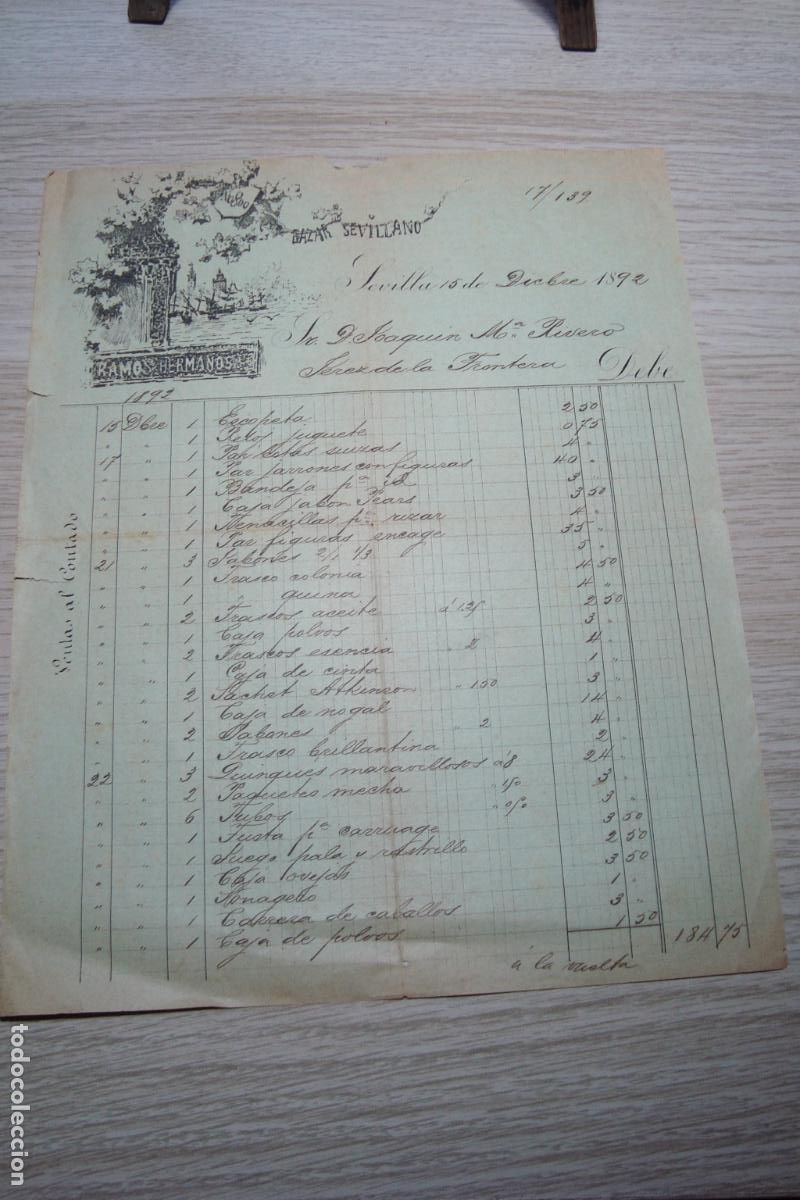 17/139
BAZAR SEVILLANO
Sevilla 15 de Dicbre 1892
Sr. D. Joaquin Mª Rivero
Jerez de la Frontera Debe
RAMOS HERMANOS
Ventas al Contado
1892
15 Dbre 1 Escopeta 2 50
" " 1 juguete 0 75
17 " 1 Par suizas 4 "
" " 1 Par jarrones con figuras 40 "
" " 1 Bandeja pª id 3 "
" " 1 Caja jabon Pears 3 50
" " 1 Tenacillas pª rizar 4 "
" " 1 Par figuras encage 35 "
21 " 3 Jabones 2/1 1/3 5 "
" " 1 Frasco colonia 4 50
" " 1 " quina 4 "
" " 2 Frascos aceite á 1.25 2 50
" " 1 Caja polvos 3 "
" " 2 Frascos esencia " 2 4 "
" " 1 Caja de cinta 1 "
" " 2 Sachet Atkinson " 1.50 3 "
" " 1 Caja de nogal 14 "
" " 2 Jabones " 2 4 "
" " 1 Frasco brillantina 2 "
22 " 3 Quinques maravillosos á 8 24 "
" " 2 Paquetes mecha " 1.50 3 "
" " 6 Tubos " 0.50 3 "
" " 1 Fusta pª carruage 3 50
" " 1 Juego pala y rastrillo 2 50
" " 1 Caja ovejas 3 50
" " 1 1 "
" " 1 Carrera de caballos 3 "
" " 1 Caja de polvos 1 50 184 75
á la vuelta
todocoleccion
todocoleccion.net